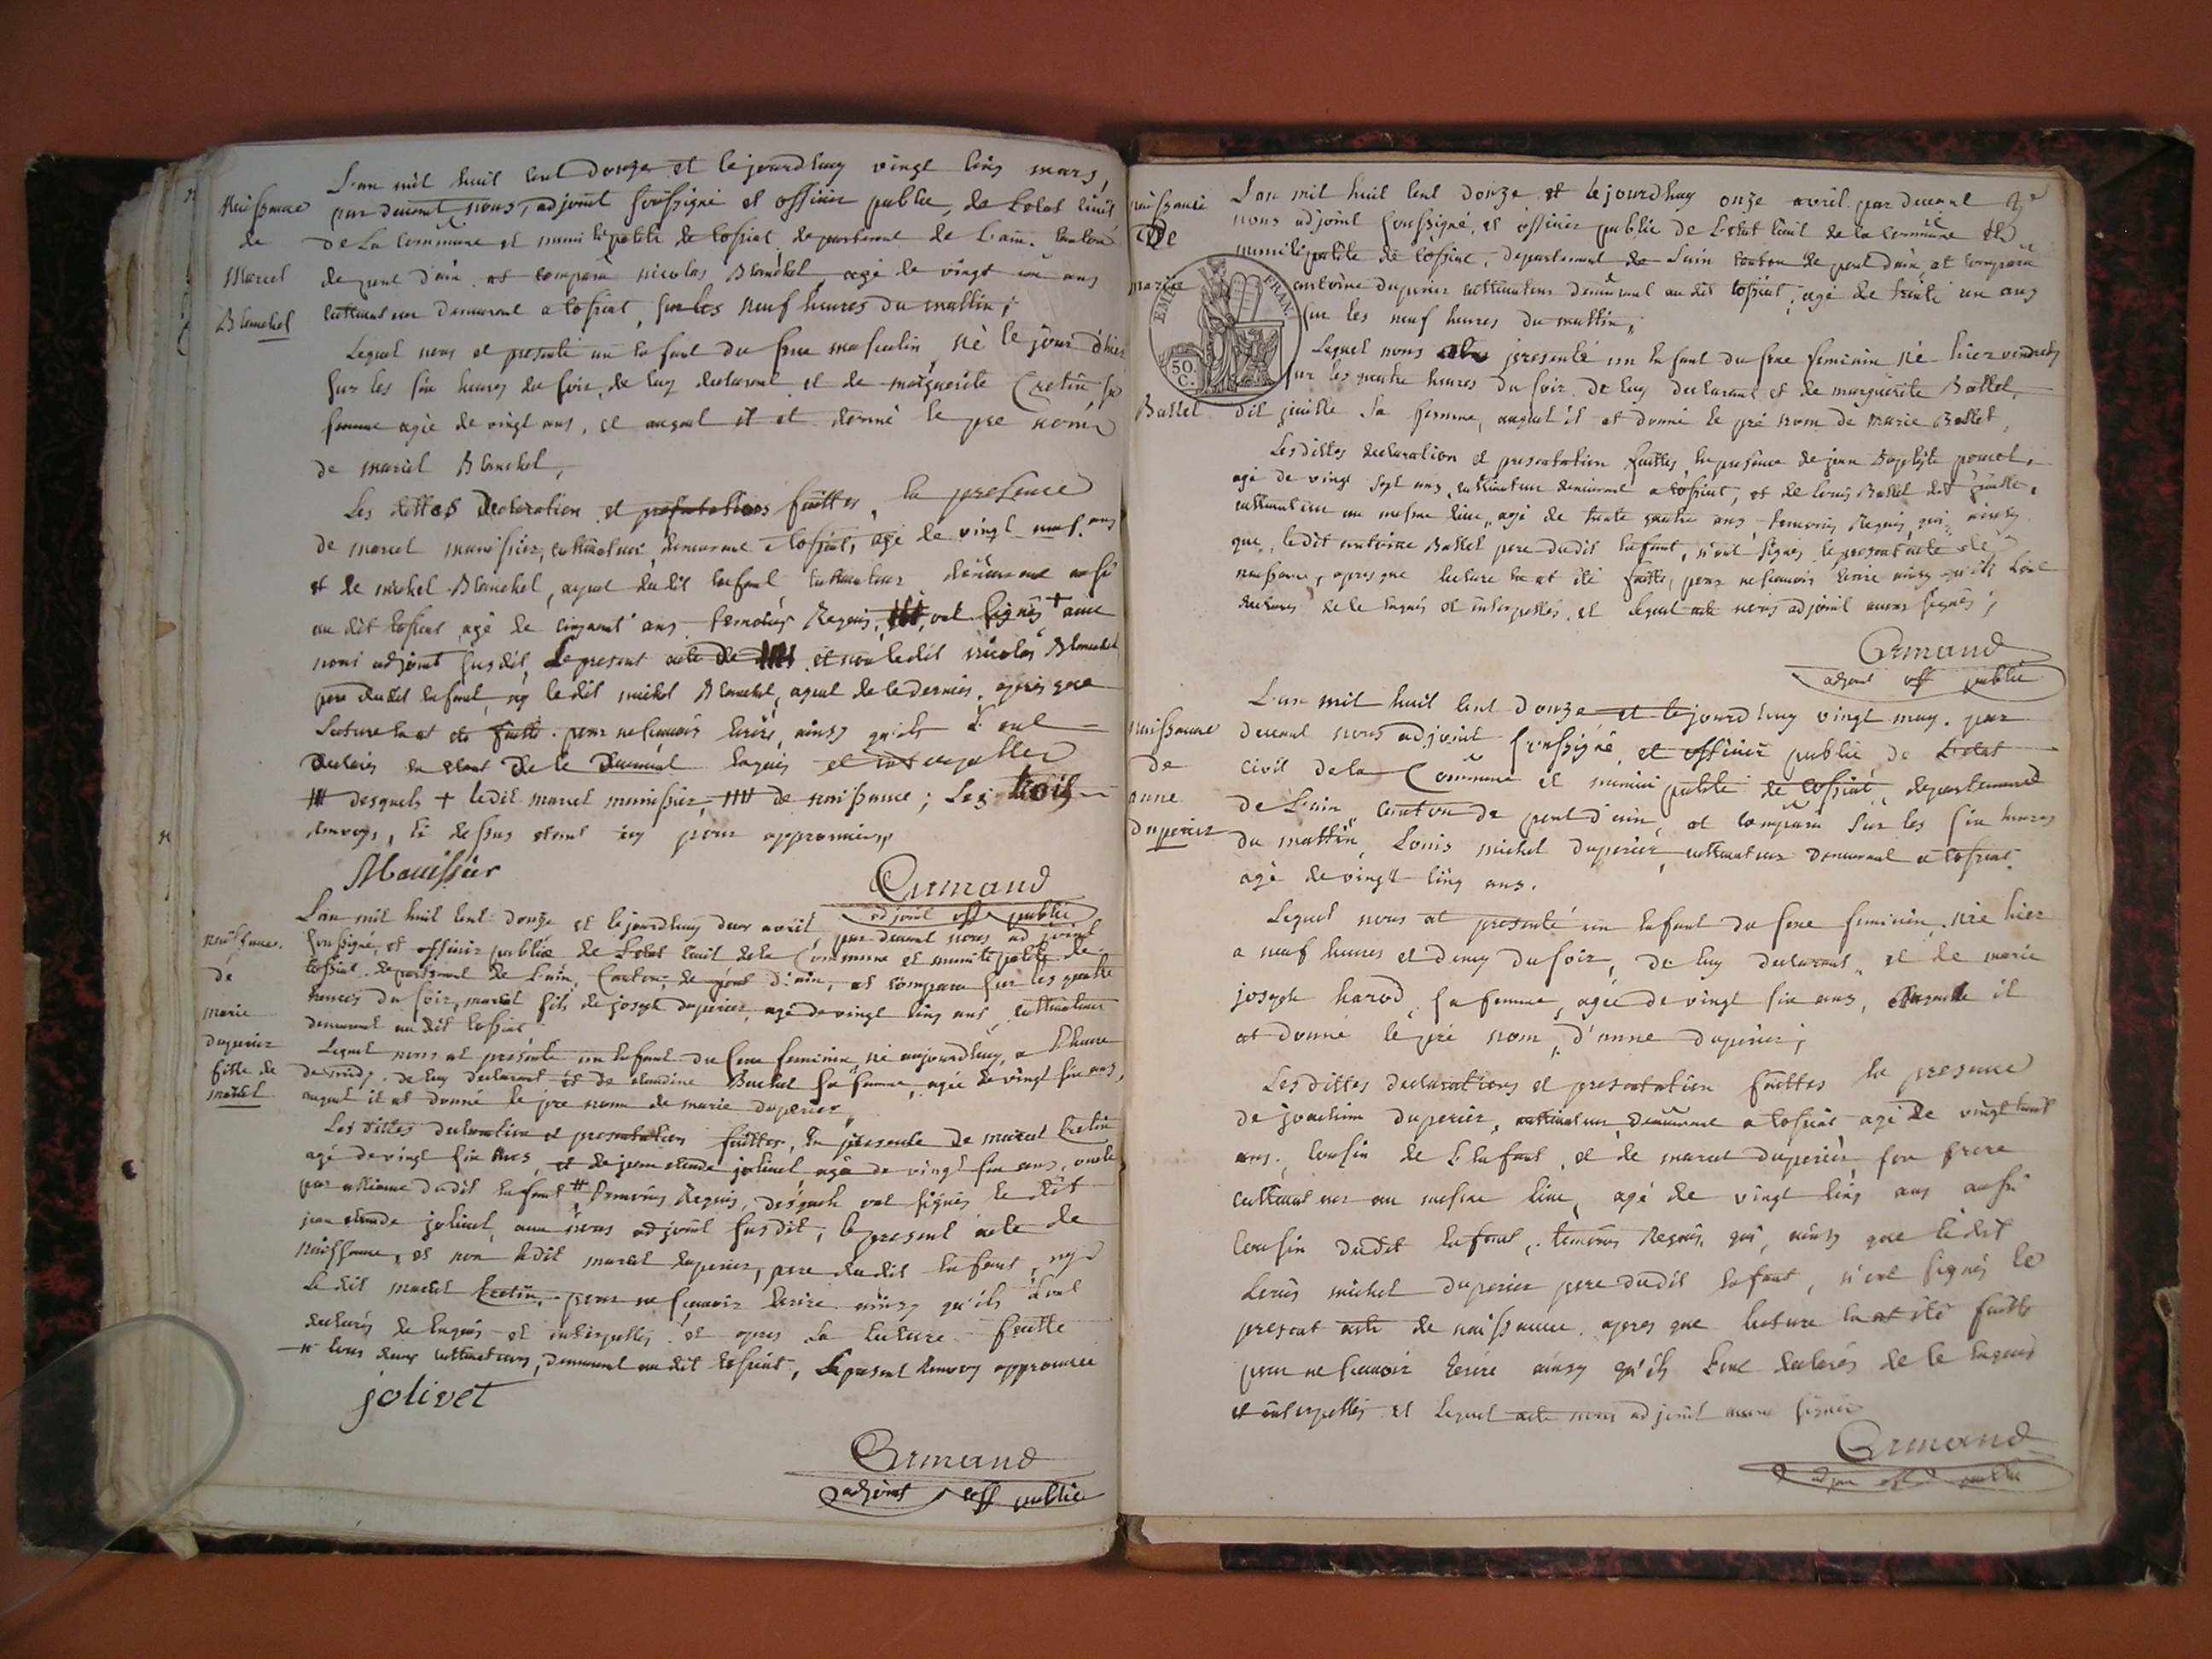 Naissance
de
Marcel
Blanchet
L'an mil huit cent douze et le jourd'huy vingt cinq mars,
par devant nous, adjoint soussigné et officier public, de l'etat civil
de La commune et municipalité de tossiat departement de L'ain. canton
de pont d'ain. at comparu nicolas Blanchet agé de vingt un ans
cultivateur demeurant a tossiat, sur les neuf heures du mattin;
Lequel nous at presenté un enfant du sexe masculin né le jour d'hier
sur les six heures du soir, de luy declarant et de marguerite Cretin sa
femme agée de vingt ans, et auquel il at donné le pre nom
de marcel Blanchet,
Les dittes declaration et presentations faittes, en presence
de marcel manissier, cultivateur, demeurant a tossiat, agé de vingt neuf ans
et de michel Blanchet, ayeul dudit enfant, cultivateur demeurant aussi
au dit tossiat agé de cinquante ans temoins Requis, ont signés + avec
nous adjoint susdit, Le present acte de et non ledit nicolas Blanchet
pere dudit enfant, ny ledit michel Blanchet, ayeul de le dernier, apres que
lecture en at été faitte. pour ne scavoir ecrire, ainsy qu'ils L'ont
declarés en etant de le dument enquis et interpellés
desquels + ledit marcel manissier, de naissance; Les trois
renvoys, ci dessus etant icy pour approuvés,
Manissier
Armand
adjoint off public
naissance
de
marie
duperier
fille de
marcel
L'an mil huit cent douze et le jourd'huy deux avril, par devant nous adjoint
soussigné, et officier public de L'etat civil de la Commune et municipalité de
tossiat. departement de L'ain, Canton, de pont d'ain, at comparu sur les quatre
heures du soir, marcel fils de joseph duperier, agé de vingt cinq ans, cultivateur
demeurant au dit tossiat
Lequel nous at presenté un enfant du sexe feminin né aujourdhuy, a L'heure
de midy. de luy declarant et de claudine Buchet sa femme, agée de vingt six ans,
auquel il at donné le pre nom de marie duperier,
Les dittes declaration et presentation faittes, En presence de marcel Cretin
agé de vingt six ans, et de jean claude jolivet, agé de vingt six ans, oncle
par alliance dudit enfant # temoins Requis, desquels ont signés le dit
jean claude jolivet, avec nous adjoint susdit, le present acte de
naissance, et non ledit marcel duperier, pere dudit enfant, ny
Le dit marcel Cretin, pour ne scavoir ecrire ainsy qu'ils L'ont
declarés de enquis et interpellés et apres La lecture faitte
# tous deux cultivateurs, demeurant au dit tossiat, Le present renvoy approuvée
jolivet
Armand
adjoint off public
naissance
de
marie
Ballet
L'an mil huit cent douze et le jourd'huy onze avril par devant
nous adjoint soussigné, et officier public de L'etat civil de la commune et
municipalité de tossiat, departement de Lain canton de pont d'ain, at comparu
antoine duperier cultivateur demeurant au dit tossiat, agé de trente un ans
sur les neuf heures du mattin;
EMP. FRAN.
50.
C.
Lequel nous presenté un enfant du sexe feminin né hier vendredy
sur les quatre heures du soir. de luy declarant et de marguerite Ballet,
dit juille sa femme, auquel il at donné le pré nom de marie Ballet,
Les dittes declaration et presentation faittes, en presence de jean Baptiste poncet,
agé de vingt sept ans, cultivateur demeurant a tossiat, et de Louis Ballet dit juille,
cultivateur au mesme lieu, agé de trente quatre ans, temoins Requis, qui ainsy
que, ledit antoine Ballet pere dudit enfant, n'ont signés le present acte de
naissance, apres que lecture en at été faitte, pour ne scavoir ecrire ainsy qu'ils L'ont
declarés de le enquis et interpellés, et lequel acte nous adjoint avons signés;
Armand
adjoint off public
naissance
de
anne
duperier
L'an mil huit cent douze et le jourd'huy vingt may. par
devant nous adjoint soussigné, et officier public de L'etat
civil de la Commune et municipalité de tossiat, departement
de L'ain, canton de pont d'ain, at comparu sur les six heures
du mattin, Louis michel duperier, cultivateur demeurant a tossiat
agé de vingt cinq ans.
Lequel nous at presenté un enfant du sexe feminin née hier
a neuf heures et demy du soir, de luy declarant, et de marie
joseph harod, sa femme, agée de vingt six ans, a laquelle il
at donné le pré nom, d'anne duperier;
Les dittes declarations et presentation faittes en presence
de joachim duperier, cultivateur, demeurant a tossiat agé de vingt huit
ans. cousin de L'enfant, et de marcel duperier, son frere
cultivateur au mesme lieu, agé de vingt cinq ans aussi
cousin dudit enfant, temoins Requis, qui, ainsy que ledit
Louis michel duperier pere dudit enfant, n'ont signés le
present acte de naissance. apres que lecture en at été faitte
pour ne scavoir ecrire ainsy qu'ils L'ont declarés de le enquis
et interpellés et Lequel acte nous adjoint avons signés
Armand
adjoint off public